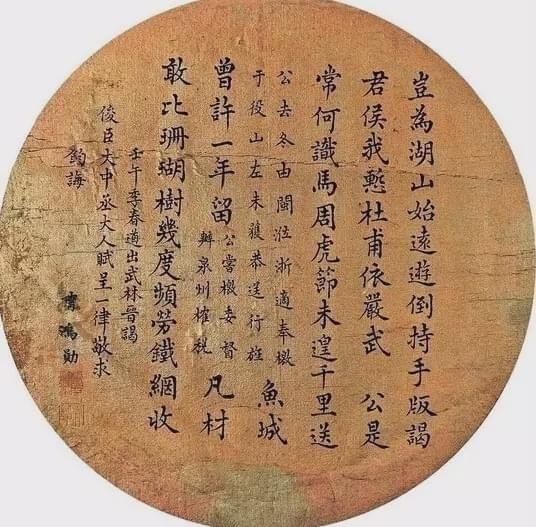 豈為湖山始遠遊倒持手版謁
君侯我慙杜甫依嚴武 公是
常何識馬周虎節未遑千里送
公去冬由閩涖浙適奉檄
于役山左未獲恭送行旌
魚城
曾許一年留
公嘗檄委督
辦泉州榷稅
凡材
敢比珊瑚樹幾度頻勞鐵網收
壬午季春道出武林晉謁
俊臣大中丞大人賦呈一律敬求
鈞誨
鴻勛